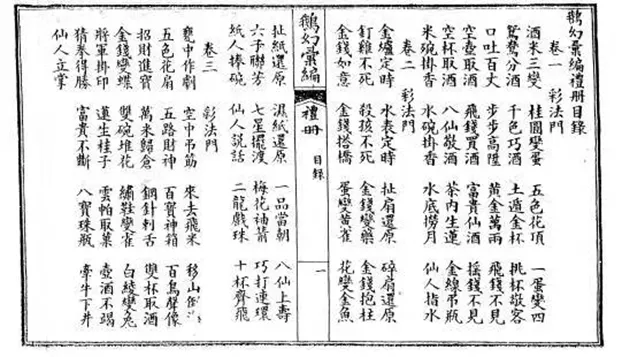 鵝幻彙編禮冊目錄
卷一 彩法門
酒來三變 桂圓變蛋 五色花頂 一蛋變四
鴛鴦分酒 千色巧酒 土遁金杯 挑杯敬客
口吐百丈 步步高陞 黃金萬兩 飛錢不見
空壺取酒 飛錢買酒 富貴仙酒 搖錢不見
空杯取酒 八仙敬酒 茶內生蓮 金線吊瓶
米碗掛香 水碗掛香 水底撈月 仙人指水
卷二 彩法門
金爐定時 水表定時 扯扇還原 碎扇還原
釘雞不死 殺孩不死 金錢變藥 金錢抱柱
金錢如意 金錢搭橋 蛋變黃雀 花變金魚
鵝幻彙編 禮冊 目錄 一
扯紙還原 濕紙還原 一品當朝 八仙上壽
六子聯芳 七星擺渡 梅花袖箭 巧打連環
紙人捧碗 仙人說話 二龍戲珠 十杯齊飛
卷三 彩法門
甕中作劇 空中吊筋 來去飛米 移山
五色花扇 五路財神 百寶神箱 百鳥聲像
招財進寶 萬米歸倉 鋼針刺舌 雙杯取酒
金錢變蝶 雙碗堆花 繡鞋變雀 白綾變兔
將軍掛印 蓮生桂子 雲帕取菓 壺酒不竭
猜拳得勝 富貴不斷 八寶珠瓶 牽牛下井
仙人立掌